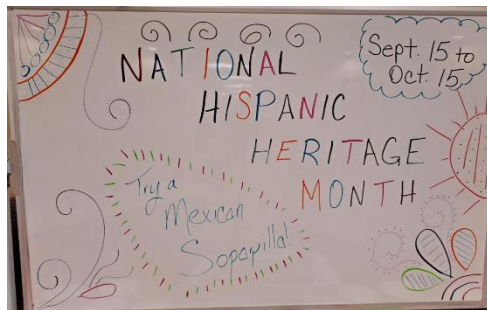 NATIONAL
HISPANIC
HERITAGE
MONTH
Sept. 15 to
Oct. 15
Try a
Mexican
Sopapilla!